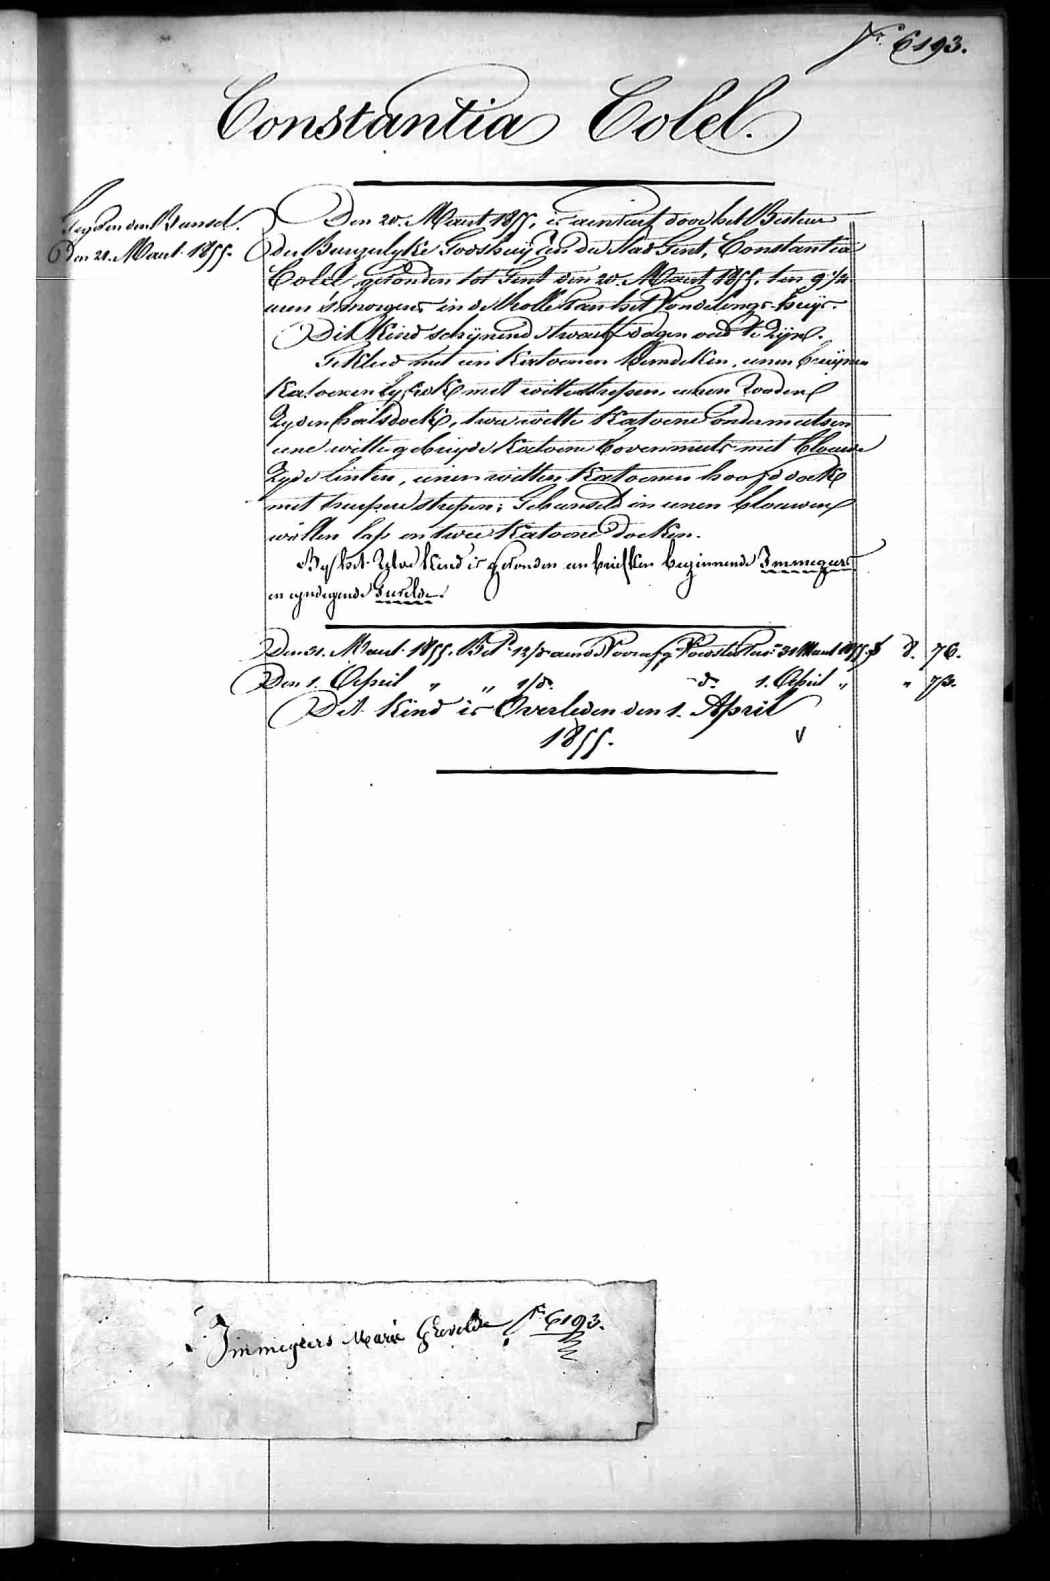 N° 6193.
Constantia Colel.
Den 21. Maart 1855.
Den 20. Maart 1855, is aenvaert door het Bestier
der Burgerlyke Godshuyzen der Stad Gent, Constantia
Colel, gevonden tot Gent den 20. Maart 1855, ten 9 1/2
uren 's morgens in de Rolle van het Vondelings-huys.
Dit Kind schynende twaalf dagen oud te zyn.
Gekleed met een Katoenen Hemdeken, eenen bruynen
Katoenen lyfrok met witte strepen, eenen rooden
Zyden halsdoek, twee witte Katoene ondermutsen
eene witte gebreyde Katoene bovenmuts met blauwe
Zyde linten, eenen witten Katoenen hoofddoek
met purpere strepen; Gebunseld in eenen blauwen
wollen lap en twee Katoene doeken.
By het Zelve Kind is gevonden een briefken beginnende Immegeers
en eyndigende Gevelde.
Den 31. Maart 1855. Bet. 12/ 31 Maart 1855. f 8. 76.
Den 1. April " " 1/8. d°. 1. April " " 73.
Dit Kind is Overleden den 1. April
1855.
V
Immegeers Marie Gevelde N° 6193.